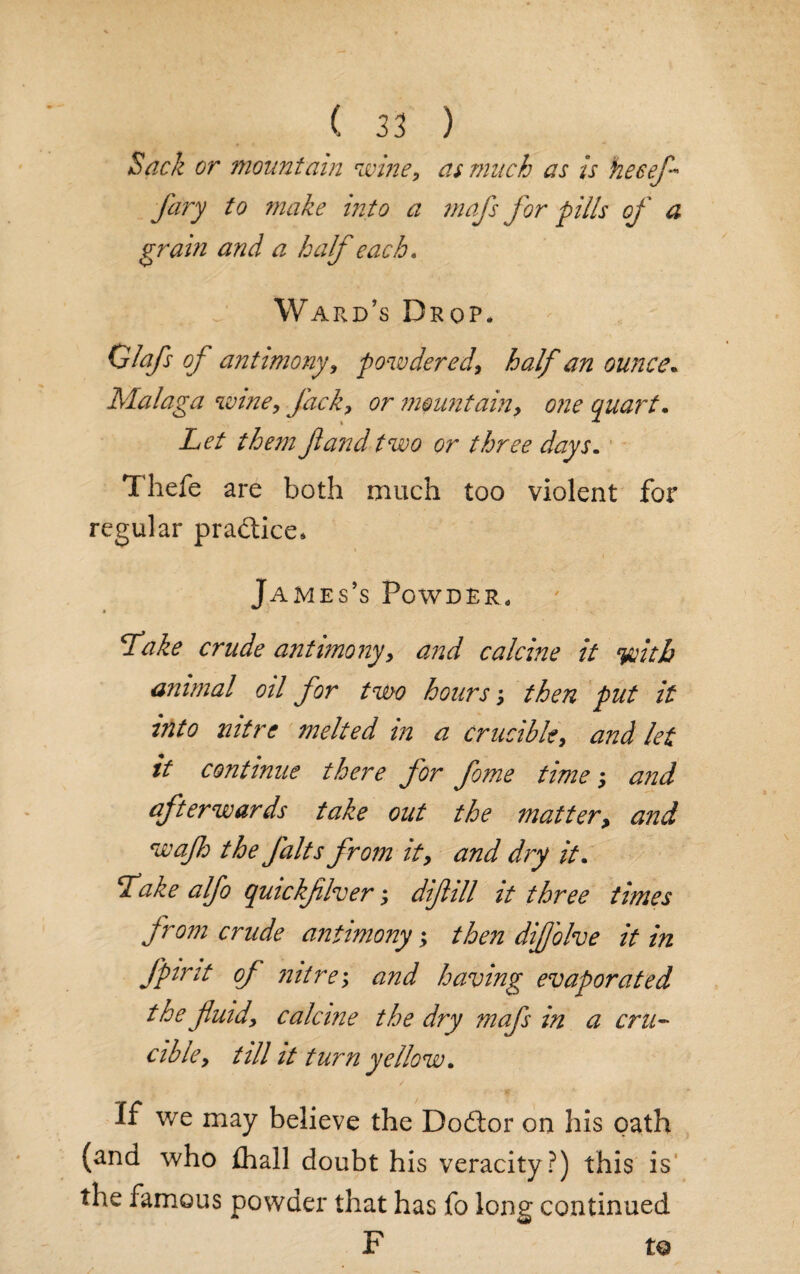 ( 33 )
Sack or mountain wine, as much as is neceſ-
ſary to make into a maſs for pills of a
grain and a half each.
Ward's Drop.
Glaſs of antimony, powdered, half an ounce.
Malaga wine, ſack, or mountain, one quart.
Let them ſtand two or three days.
Theſe are both much too violent for
regular practice.
James's Powder.
Take crude antimony, and calcine it with
animal oil for two hours; then put it
into nitre melted in a crucible, and let
it continue there for ſome time; and
afterwards take out the matter, and
waſh the ſalts from it, and dry it.
Take alſo quickſilver; diſtill it three times
from crude antimony; then diſſolve it in
ſpirit of nitre; and having evaporated
the fluid, calcine the dry maſs in a cru-
cible, till it turn yellow.
If we may believe the Doctor on his oath
(and who ſhall doubt his veracity?) this is
the famous powder that has ſo long continued
F to